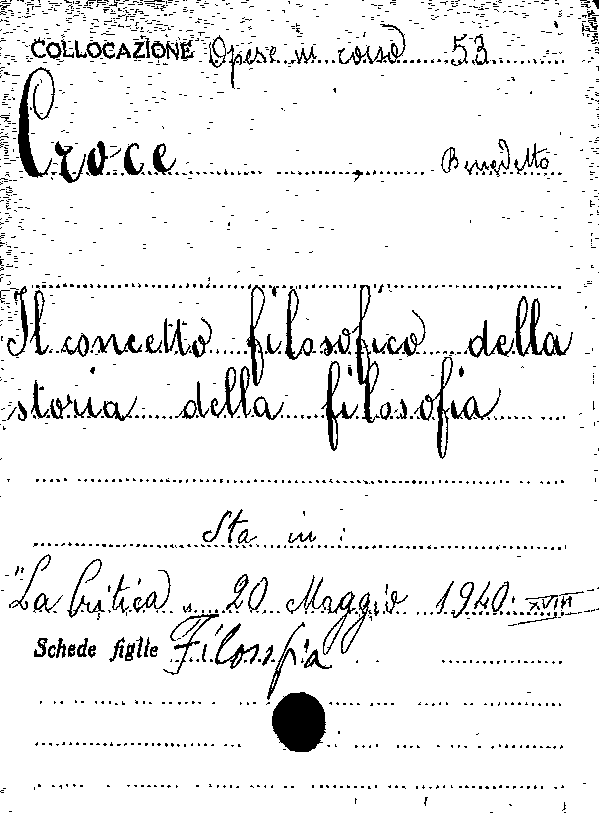 COLLOCAZIONE Opere in corso 53
Croce , Benedetto
Il concetto filosofico della
storia della filosofia
Sta in :
"La Critica" 20 Maggio 1940. XVIII
Schede figlie Filosofia